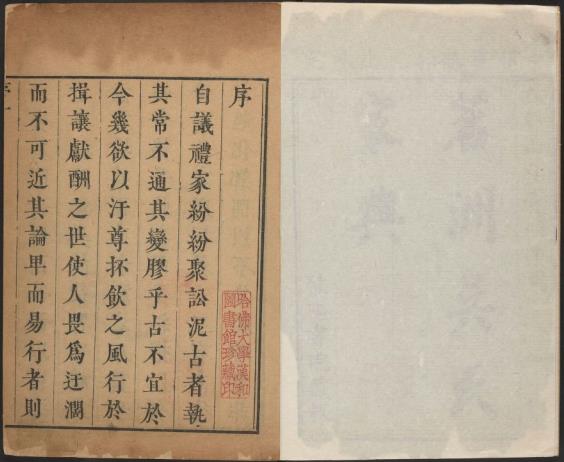 序
自議禮家紛紛聚訟泥古者執
其常不通其變膠乎古不宜於
今幾欲以汙尊抔飲之風行於
揖讓獻酬之世使人畏爲迂濶
而不可近其論卑而易行者則
哈佛大學漢和
圖書館珍藏印